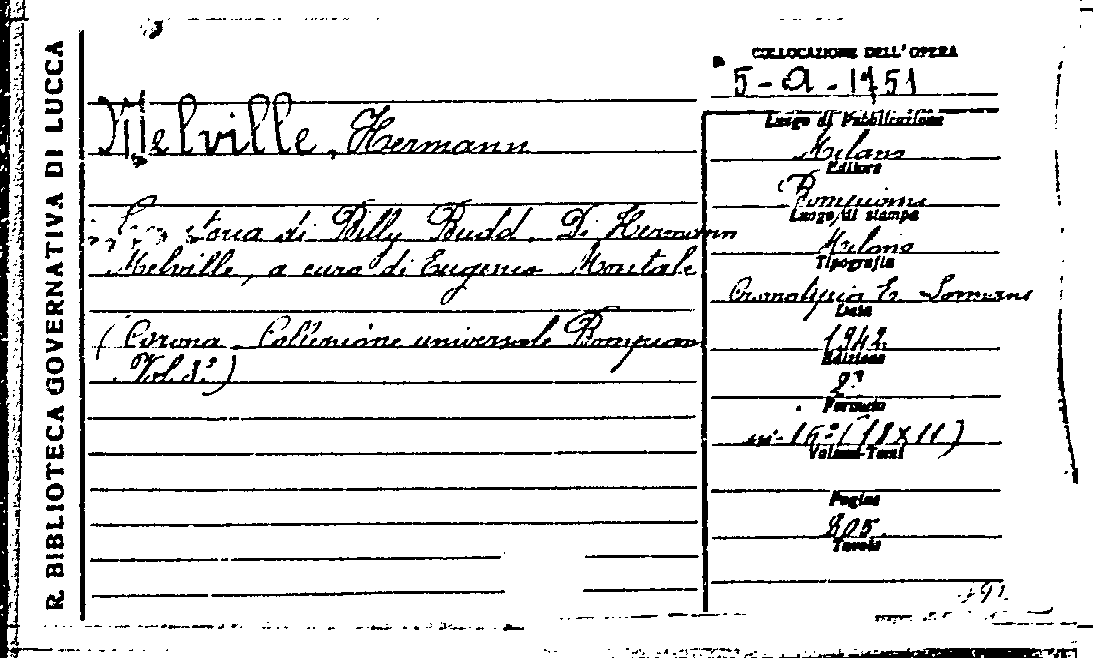 R. BIBLIOTECA GOVERNATIVA DI LUCCA
Melville, Hermann
storia di Billy Budd. Di Hermann
Melville, a cura di Eugenio Montale
(Corona - Collezione universale Bompiani
Vol. 8°)
COLLOCAZIONE DELL'OPERA
5-a-1751
Luogo di Pubblicazione
Milano
Editore
Bompiani
Luogo di stampa
Milano
Tipografia
Data
1942
Edizione
2ª
Formato
in-16°(18x11)
Volume-Tomi
Pagine
205
Tavole